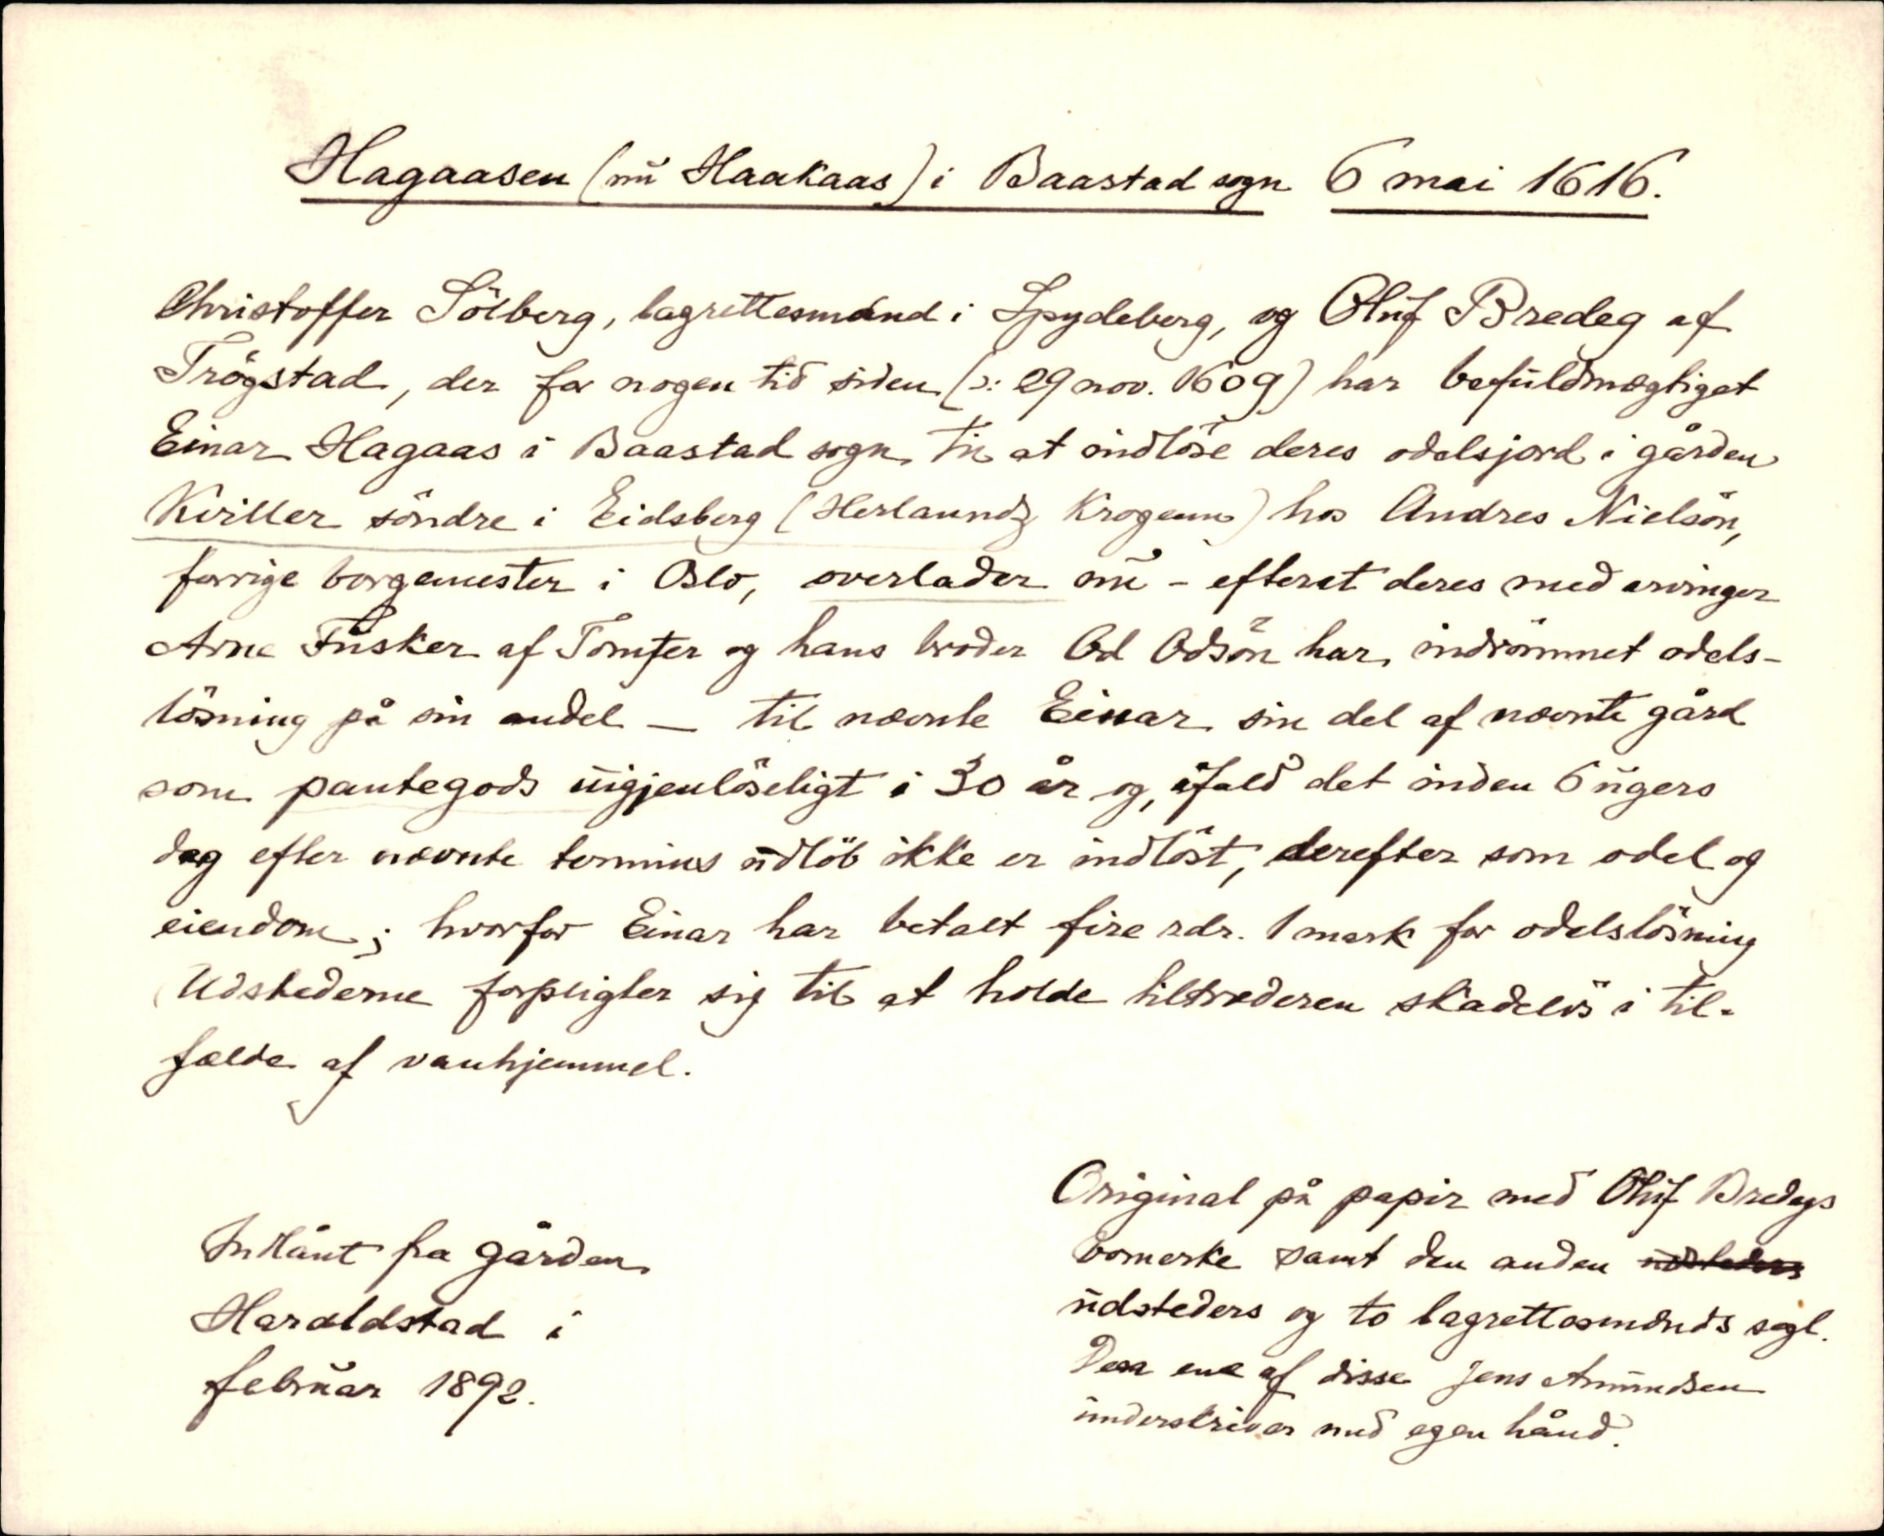 Hagaasen (nu Haakaas) i Baastad sogn 6 mai 1616.
Christoffer Sölberg, lagrettesmand i Spydeberg, og Oluf Bredeg af
Trögstad, der for nogen tid siden (ɔ: 29 nov. 1609) har befuldmægtiget
Einar Hagaas i Baastad sogn til at indlöse deres odelsjord i gården
Kviller söndre i Eidsberg (Herlaundz Krogenn) hos Andres Nielsön,
forrige borgemester i Oslo, overlader nu - efterat deres med arvinger
Arne Fusker af Tomter og hans broder Od Odsön har indrömmet odels-
lösning på sin andel — til nævnte Einar sin del af nævnte gård
som pantegods uigjenlöseligt i 30 år og, ifald det inden 6 ugers
dag efter nævnte termins udlöb ikke er indlöst, derefter som odel og
eiendom; hvorfor Einar har betalt fire rdr. 1 mark for odelslösning
Udstederne forpligter sig til at holde tiltræderen skadelös i til-
fælde af vanhjemmel.
Indlånt fra gården
Haraldstad i
februar 1892.
Original på papir med Oluf Bredegs
bomerke samt den anden udsteders
udsteders og to lagrettesmænds segl.
Den ene af disse Jens Amundsen
underskriver med egen hånd.